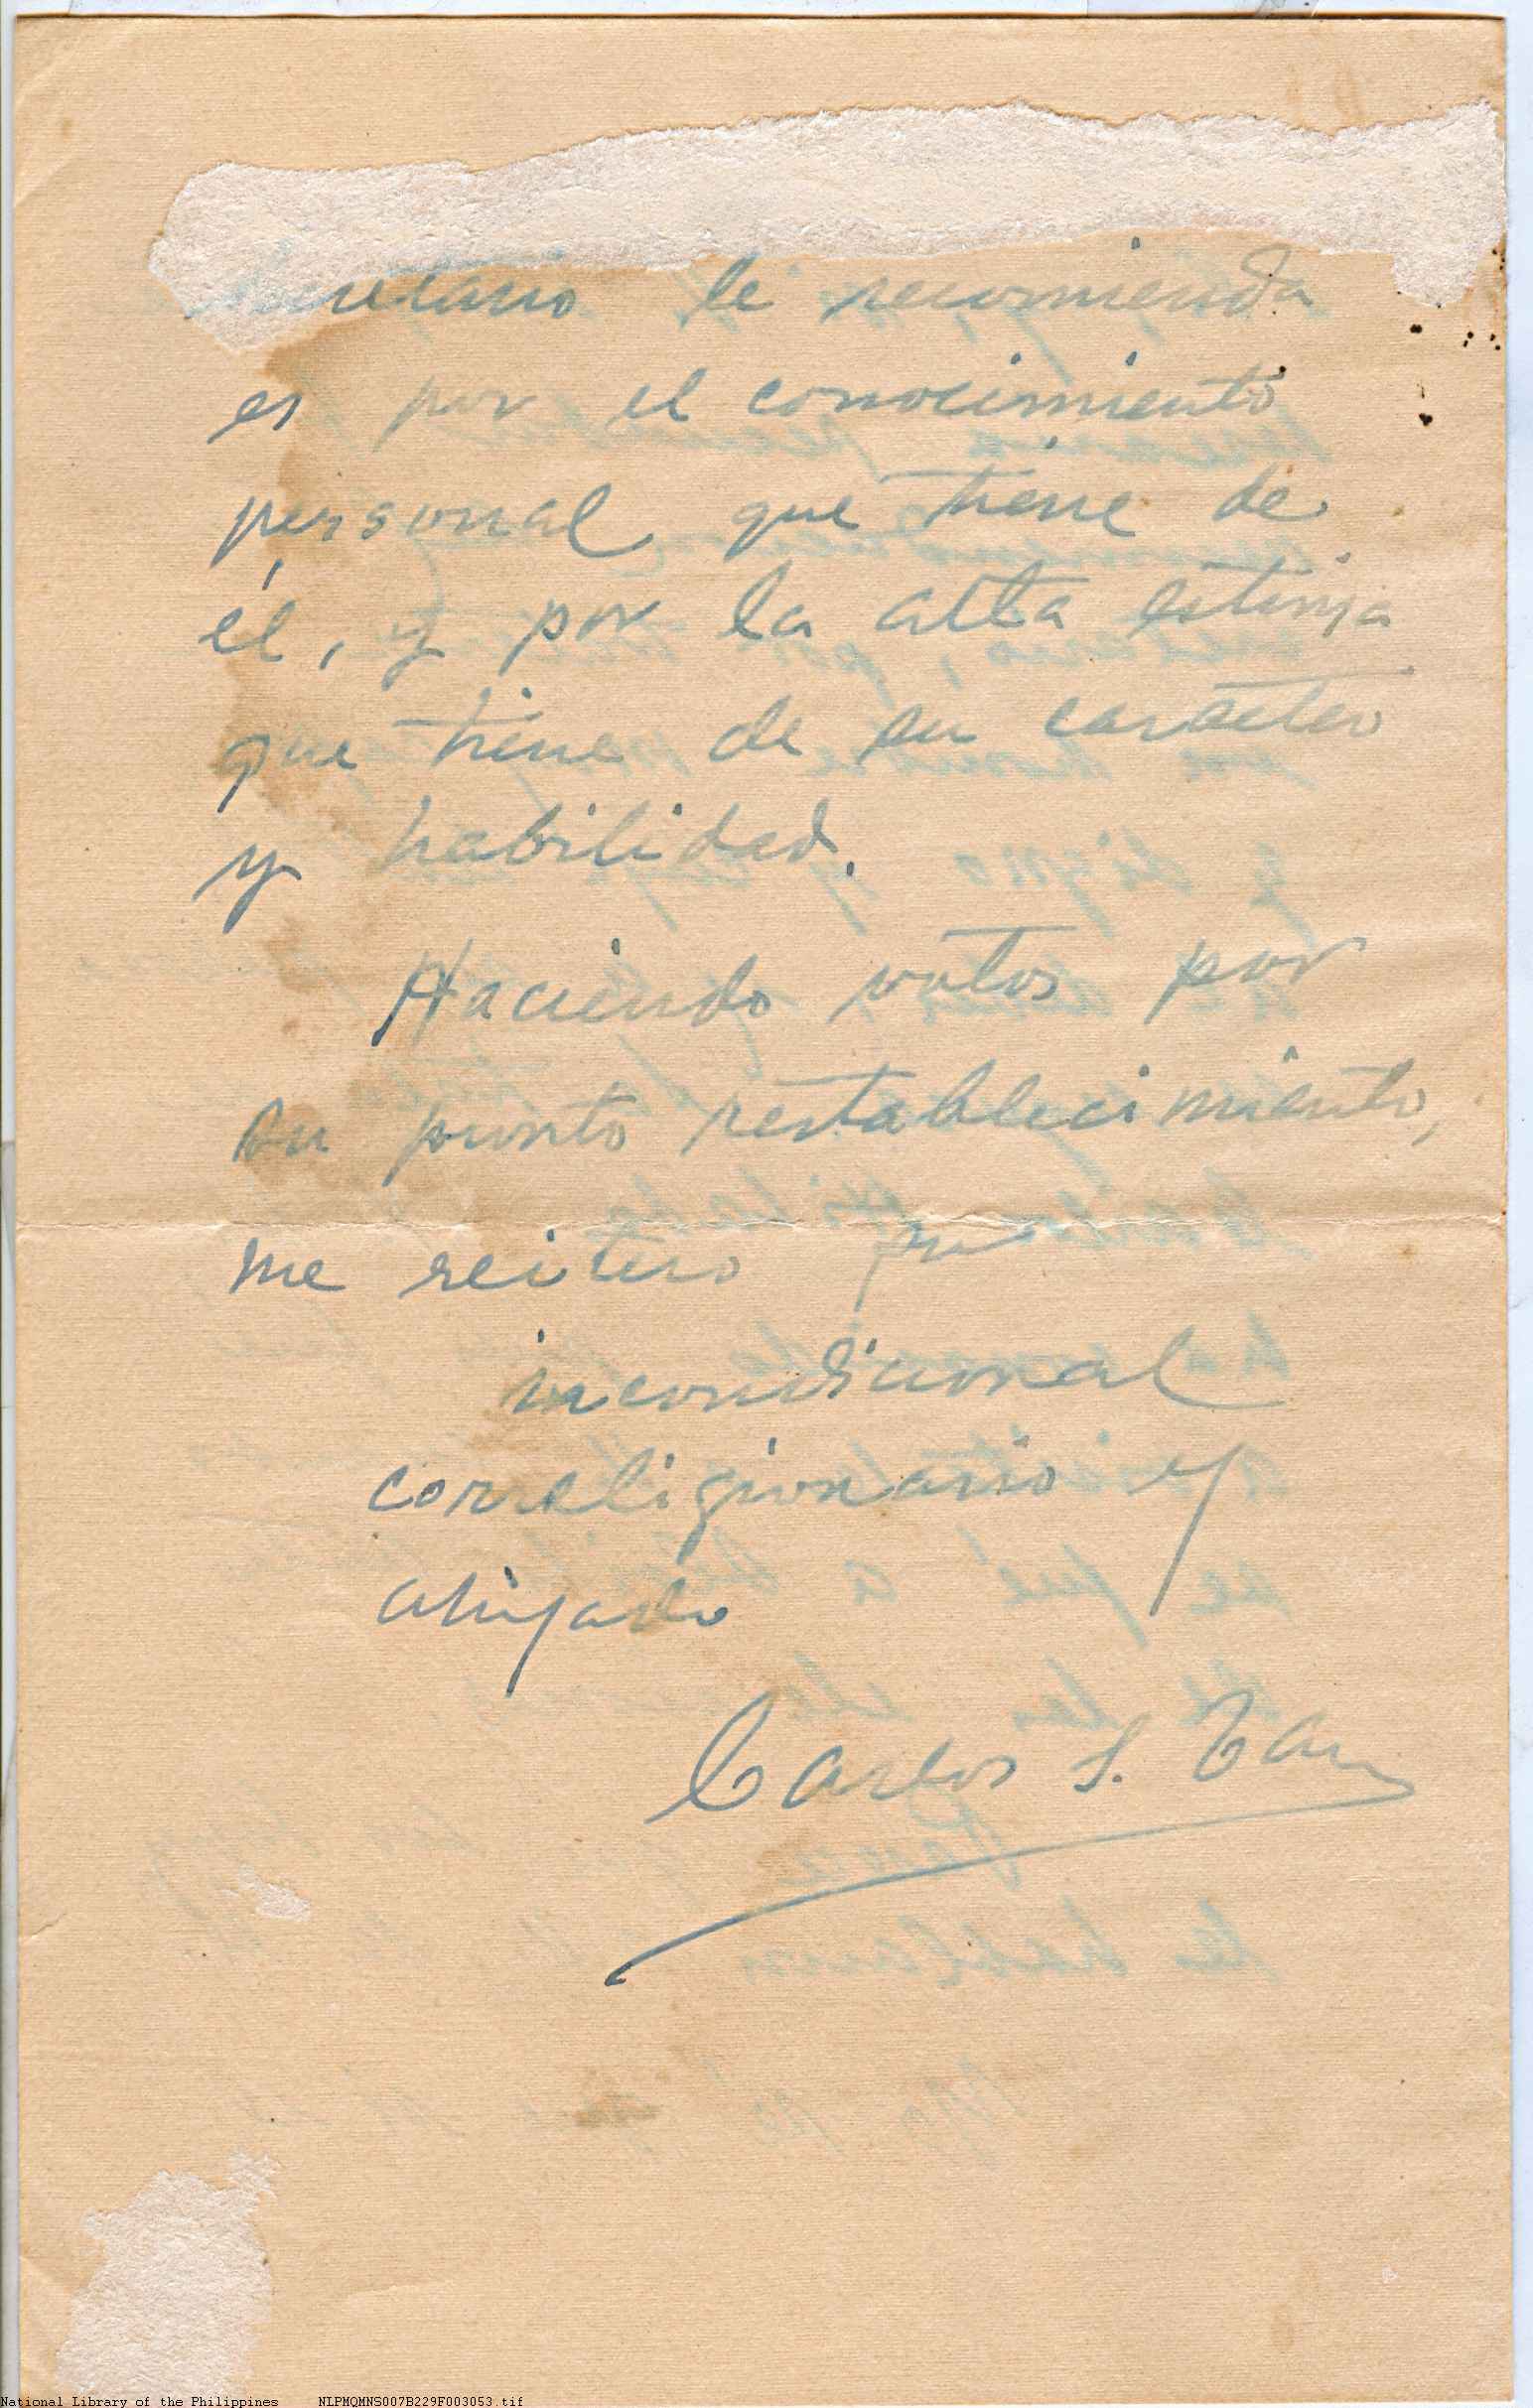 secretario le recomienda
es por el conocimiento
personal que tiene de
él, y por la alta estima
que tiene de su caracter
y habilidad.
Haciendo votos por
su pronto restablecimiento,
me reitero su
incondicional
correligionario y
ahijado
Carlos S. Tan
National Library of the Philippines NLPMQMNS007B229F003053.tif